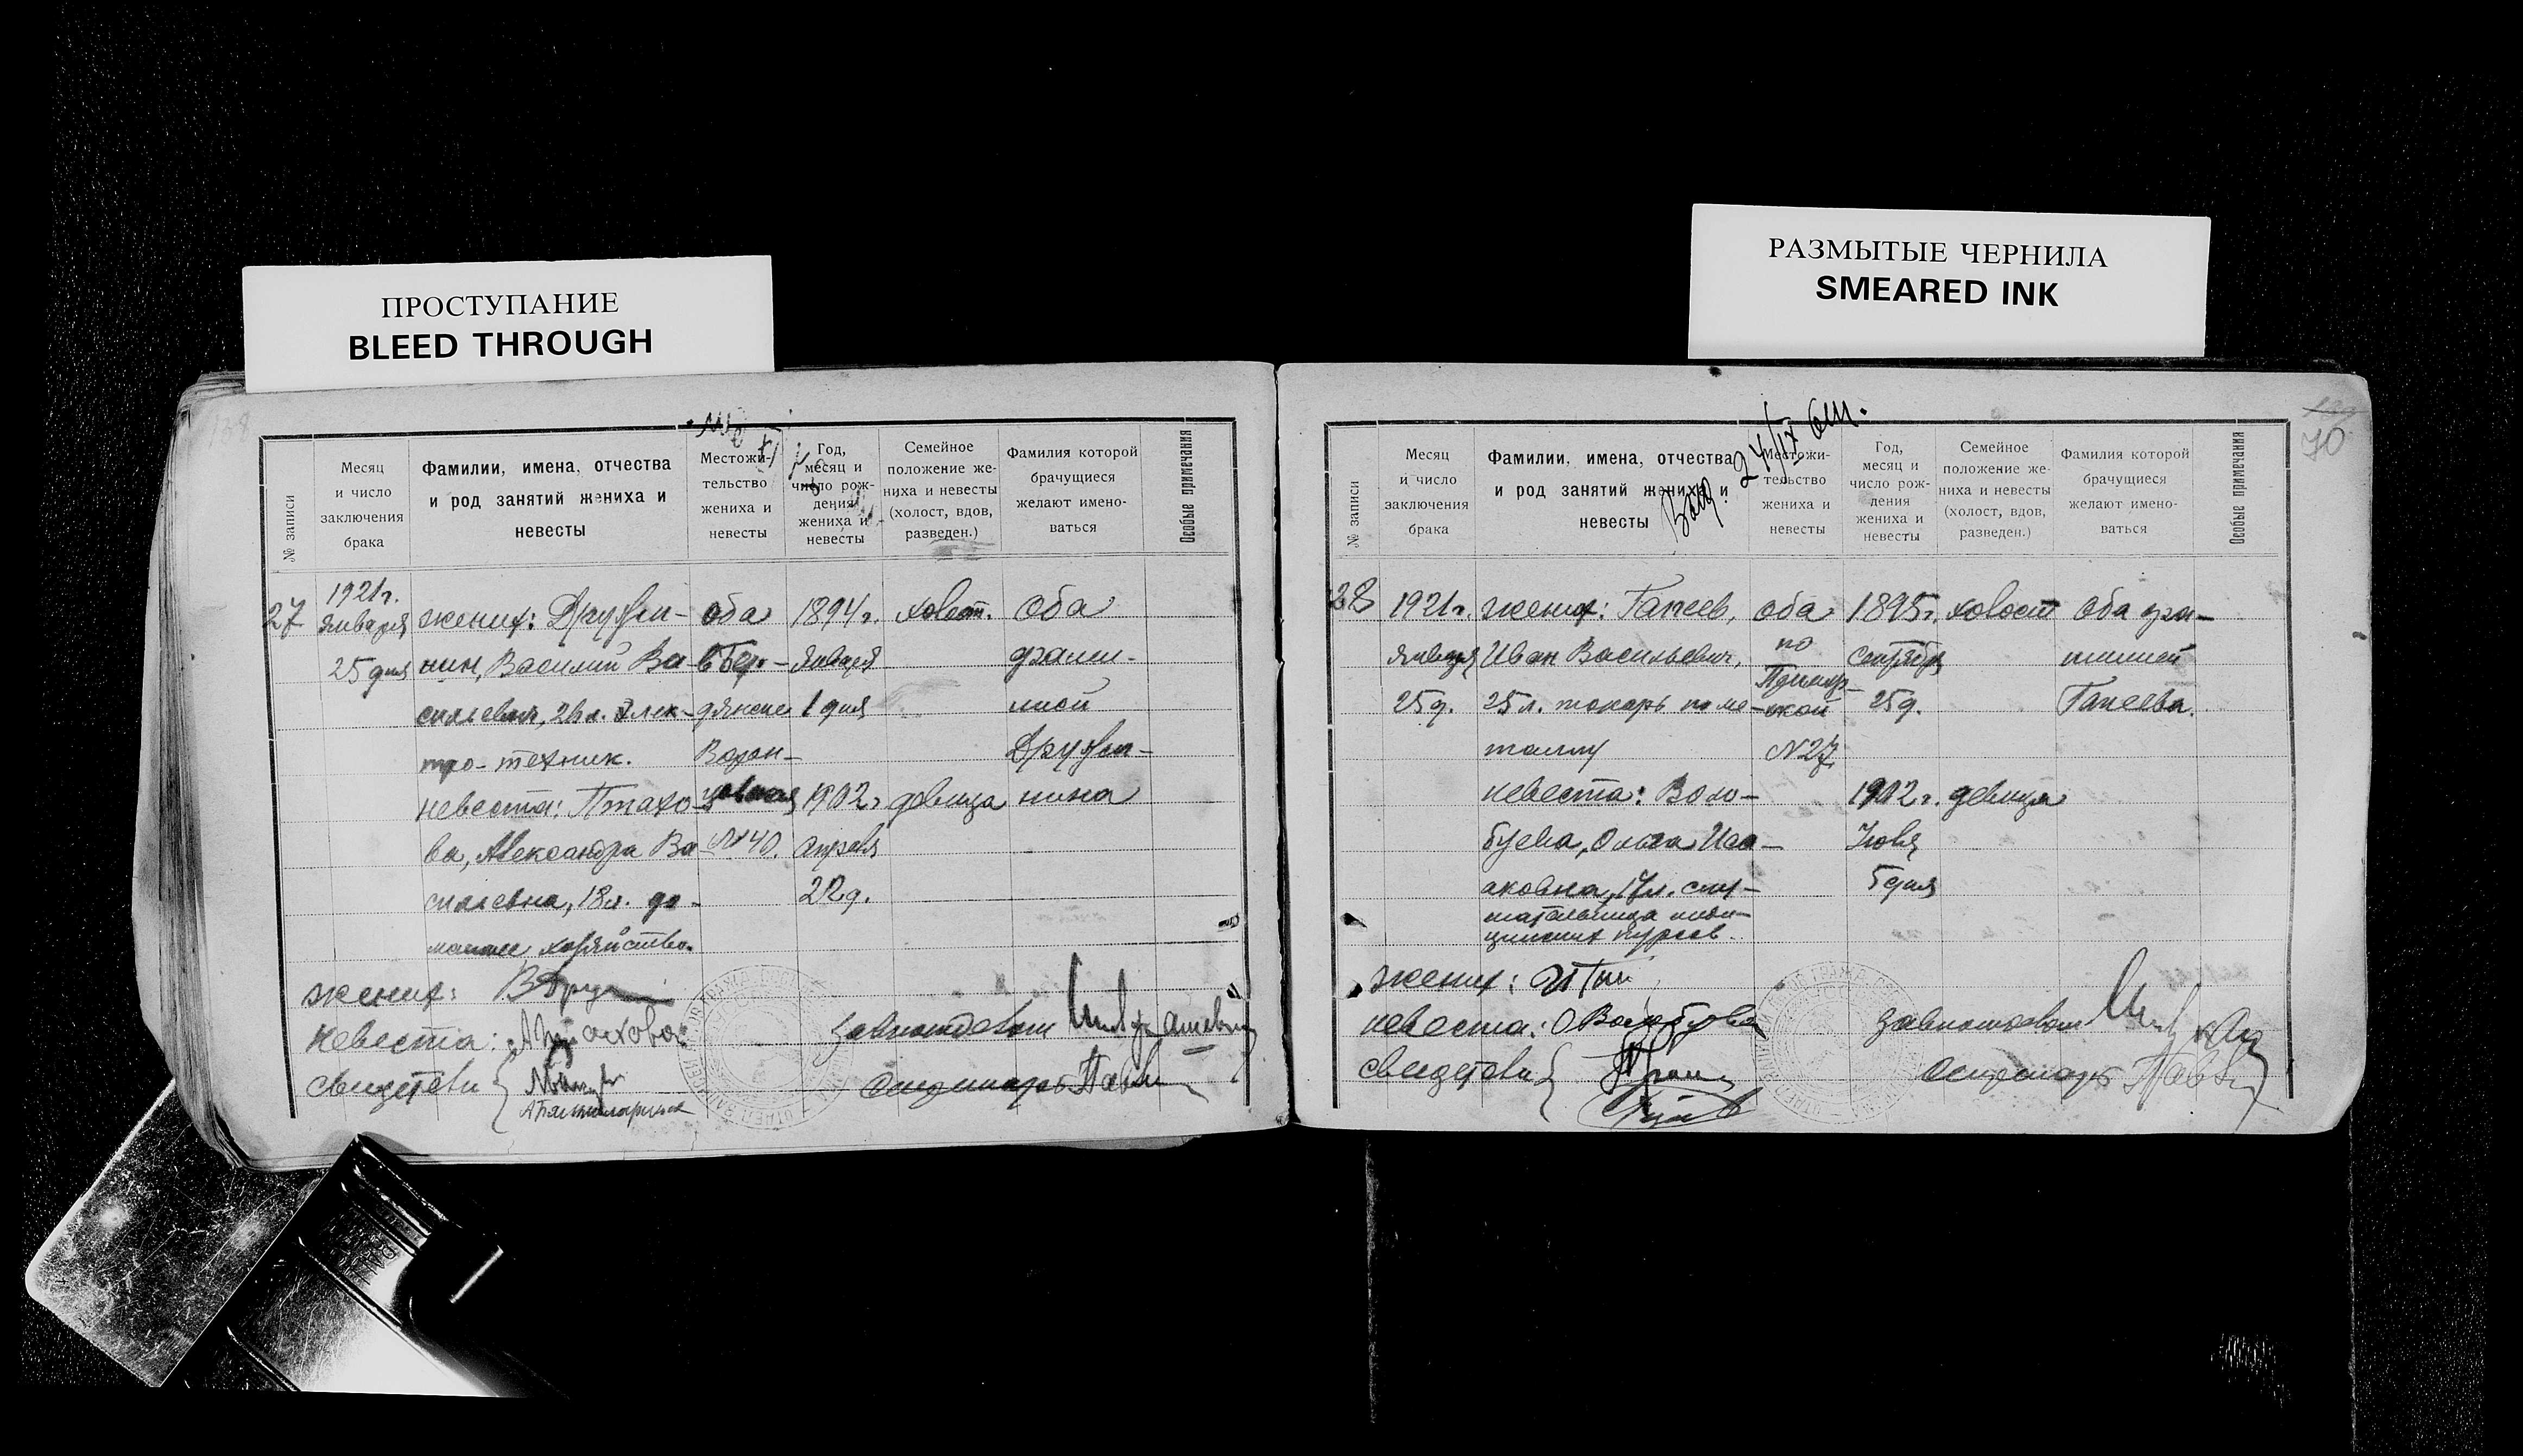 ПРОСТУПАНИЕ
BLEED THROUGH
РАЗМЫТЫЕ ЧЕРНИЛА
SMEARED INK
№ записи
Месяц
и число
заключения
брака
Фамилии, имена, отчества
и род занятий жениха и
невесты
Местожи-
тельство
жениха и
невесты
Год,
месяц и
число рож-
дения
жениха и
невесты
Семейное
положение же-
ниха и невесты
(холост, вдов,
разведен.)
Фамилия которой
брачущиеся
желают имено-
ваться
Особые примечания
27
1921 г.
января
25 дня
жених:
нин, Василий Ва-
сильевич, 26 л. Элек-
тро-техник.
невеста: Птахо-
ва, Александра Ва-
сильевна, 18 л. до-
хозяйство.
оба
в Бер-
дянске
Ворон-
цовская
№ 40.
1894 г.
января
1 дня
1902 г.
апреля
22 д.
холост.
девица
Оба
фами-
лией
нина
жених:
невеста: Птахова
свидетели
Завподотделом
Секретарь
70
№ записи
Месяц
и число
заключения
брака
Фамилии, имена, отчества
и род занятий жениха и
невесты
Местожи-
тельство
жениха и
невесты
Год,
месяц и
число рож-
дения
жениха и
невесты
Семейное
положение же-
ниха и невесты
(холост, вдов,
разведен.)
Фамилия которой
брачущиеся
желают имено-
ваться
Особые примечания
28
1921 г.
января
25 д.
жених: Гапеев,
Иван Васильевич,
25 л. токарь по ме-
таллу
невеста: Воло-
буева, Ольга Иса-
аковна, 17 л. слу-
шательница
курсов.
оба
по
ской
№ 27
1895 г.
сентября
25 д.
1902 г.
Июля
5 дня
холост
девица
Оба фа-
милией
Гапеева.
жених:
невеста: О Волобуева
свидетели
Завподотделом
Секретарь